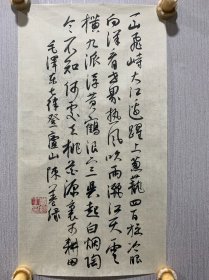 一山飛峙大江边躍上葱蘢四百旋冷眼
向洋看世界热风吹雨灑江天雲
横九派浮黄鶴浪下三吴起白烟陶
令不知何处去桃花源裏可耕田
毛泽东七律登廬山 陈